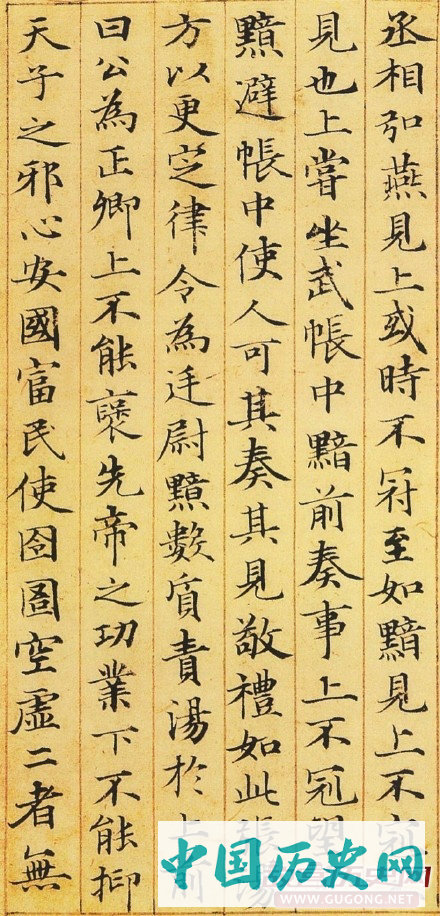 丞相弘燕見上或時不冠至如黯見上不冠
見也上嘗坐武帳中黯前奏事上不冠望
黯避帳中使人可其奏其見敬禮如此張湯
方以更定律令為廷尉黯數質責湯於上前
曰公為正卿上不能褒先帝之功業下不能抑
天子之邪心安國富民使囹圄空虛二者無
中国历史网
WWW.GUGONG.NET